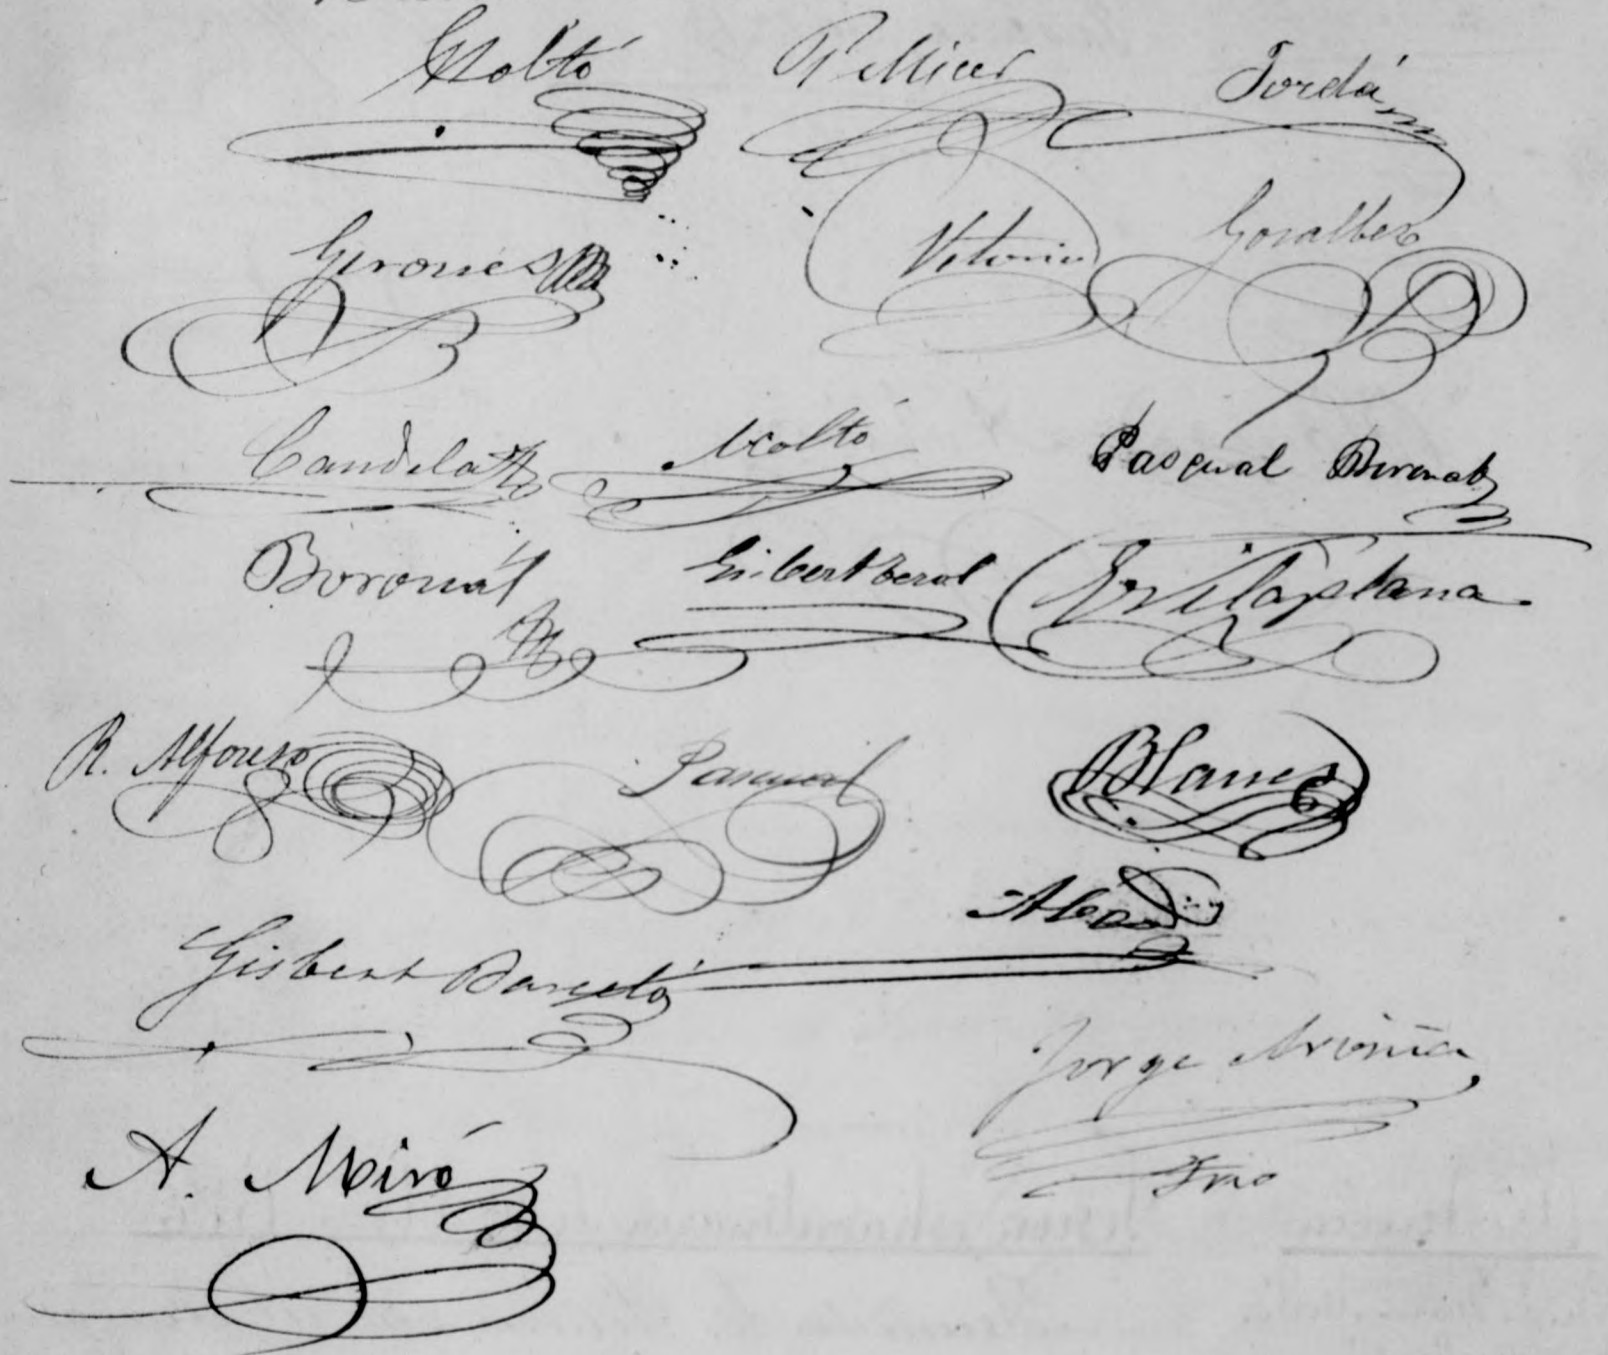 Moltó Pellicer Jordá
Gironés Vitoria Gosalbez
Candela Moltó Pascual Boronat
Boronat Gisbert Terol E. Vilaplana
R. Alfonso Pascual Blanes
Gisbert Barceló Abad
Jorge
A. Miró Srio